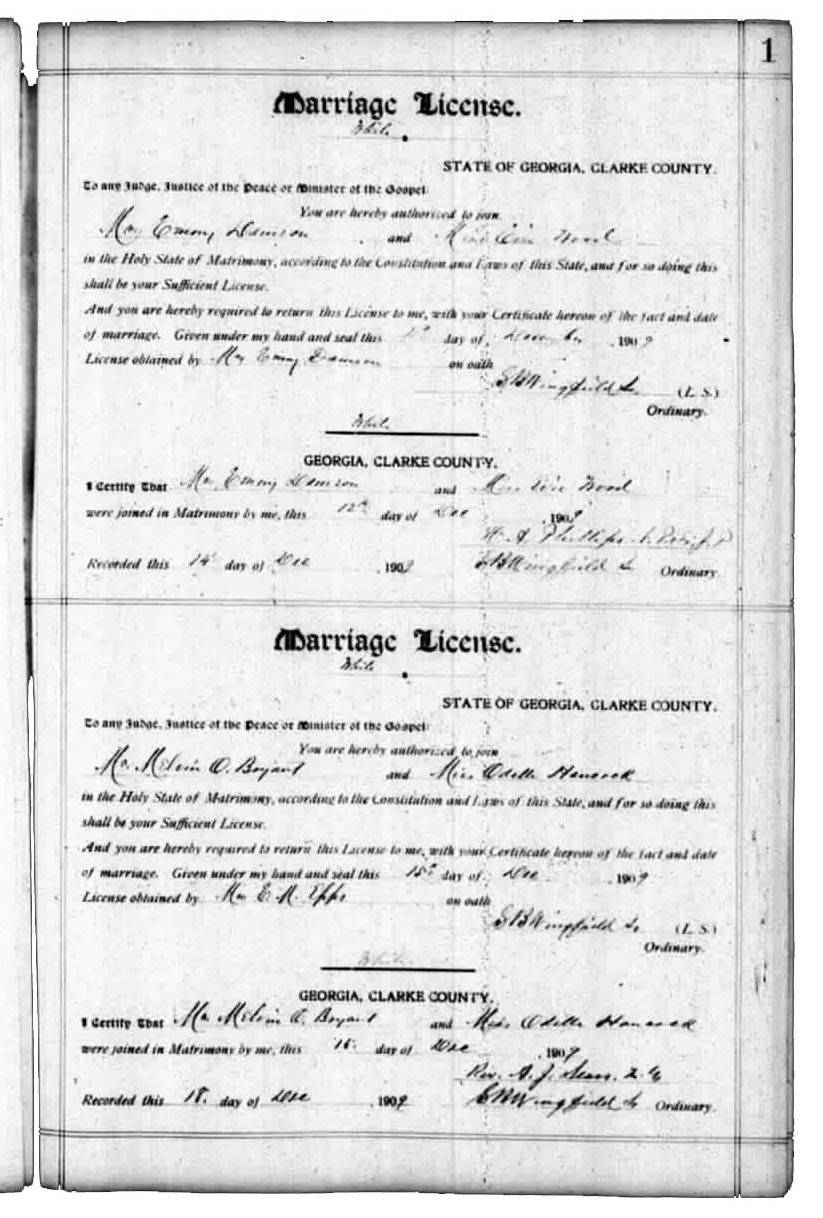 1
Marriage License.
White
STATE OF GEORGIA, CLARKE COUNTY.
To any Judge, Justice of the Peace or Minister of the Gospel:
You are hereby authorized to join
Mr Emory and Miss Wood
in the Holy State of Matrimony, according to the Constitution and Laws of this State, and for so doing this
shall be your Sufficient License.
And you are hereby required to return this License to me, with your Certificate hereon of the fact and date
of marriage. Given under my hand and seal this day of, December, 1909
License obtained by Mr Emory on oath
Wingfield (L. S.)
Ordinary.
White
GEORGIA, CLARKE COUNTY.
I Certify That Mr Emory and Miss Wood
were joined in Matrimony by me, this 12th day of Dec, 1909
H. A. Phillips
Recorded this 14 day of Dec, 1909 Wingfield Ordinary
Marriage License.
White
STATE OF GEORGIA, CLARKE COUNTY.
To any Judge, Justice of the Peace or Minister of the Gospel:
You are hereby authorized to join
Mr. Melvin O. Bryant and Miss Odelle Hancock
in the Holy State of Matrimony, according to the Constitution and Laws of this State, and for so doing this
shall be your Sufficient License.
And you are hereby required to return this License to me, with your Certificate hereon of the fact and date
of marriage. Given under my hand and seal this 15th day of, Dec, 1909
License obtained by Mr E. M. Epps on oath
Wingfield (L. S.)
Ordinary.
White
GEORGIA, CLARKE COUNTY.
I Certify That Mr Melvin O. Bryant and Miss Odelle Hancock
were joined in Matrimony by me, this day of Dec, 1909
Rev. A. J. Sears
Recorded this 18. day of Dec, 1909 Wingfield Ordinary.